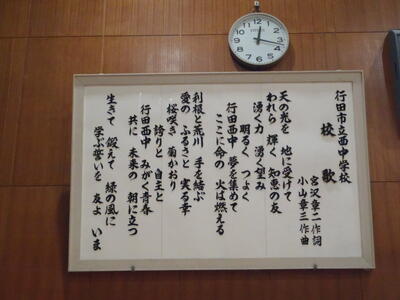 行田市立西中学校
校歌
宮沢章二 作詞
小山章三 作曲
天の光を 地に受けて
われら 輝く 知恵の友
湧く力 湧く望み
明るく つよく
行田西中 夢を集めて
ここに命の 火は燃える
利根と荒川 手を結ぶ
愛の ふるさと 実る幸
桜咲き 菊かおり
誇りと 自主と
行田西中 みがく青春
共に 未来の 朝に立つ
生きて 鍛えて 緑の風に
学ぶ誓いを 友よ いま